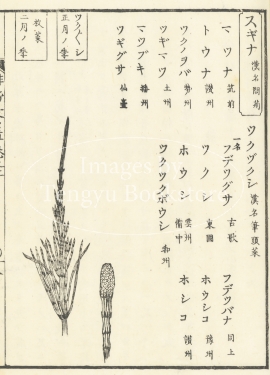 スギナ 漢名 問荊
マツナ 筑前
トウナ 讃州
ツクノヲバ 勢州
ツギマツ 土州
マツブキ 播州
ツギグサ 仙臺
ツクヅクシ 漢名 筆頭菜
一名 フデツグサ 古歌
ツクシ 東國
ホウシ 雲州 備中
ツクツクボウシ 和州
フデツバナ 同上
ホウシコ 豫州
ホシコ 讃州
ツクシ
正月ノ季
牧菜
二月ノ季
Images by
Tengyu Books